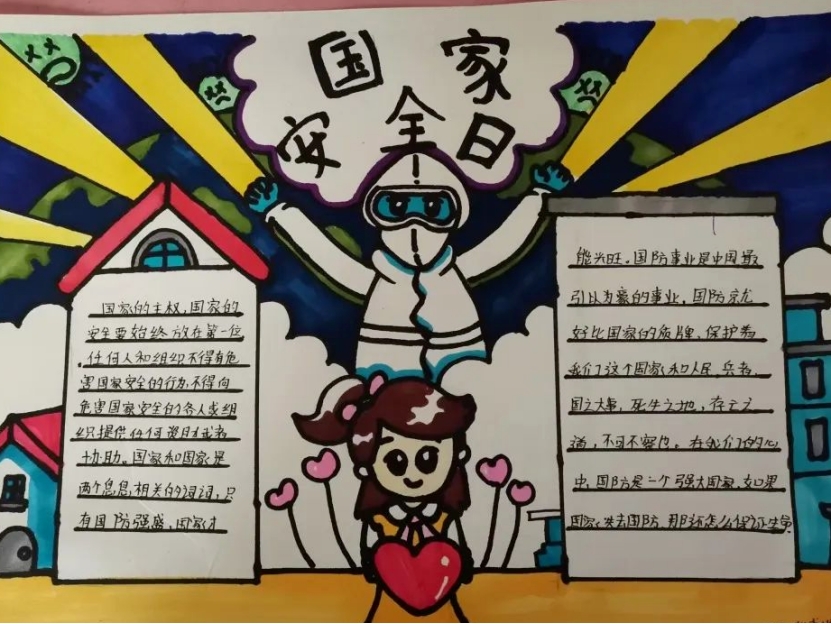 国家
安全日
国家的主权，国家的
安全要始终放在第一位
，任何人和组织不得有危
害国家安全的行为，不得向
危害国家安全的各人或组
织提供任何资助或者
协助。国家和国家是
两个息息相关的词词，只
有国防强盛，国家才
能兴旺。国防事业是中国最
引以为豪的事业，国防就
好比国家的盾牌，保护着
我们这个国家和人民，兵者，
国之大事，死生之地，存亡之
道，不可不察也。在我们的心
中，国防是一个强大国家，如果
国家失去国防，那还怎么保证